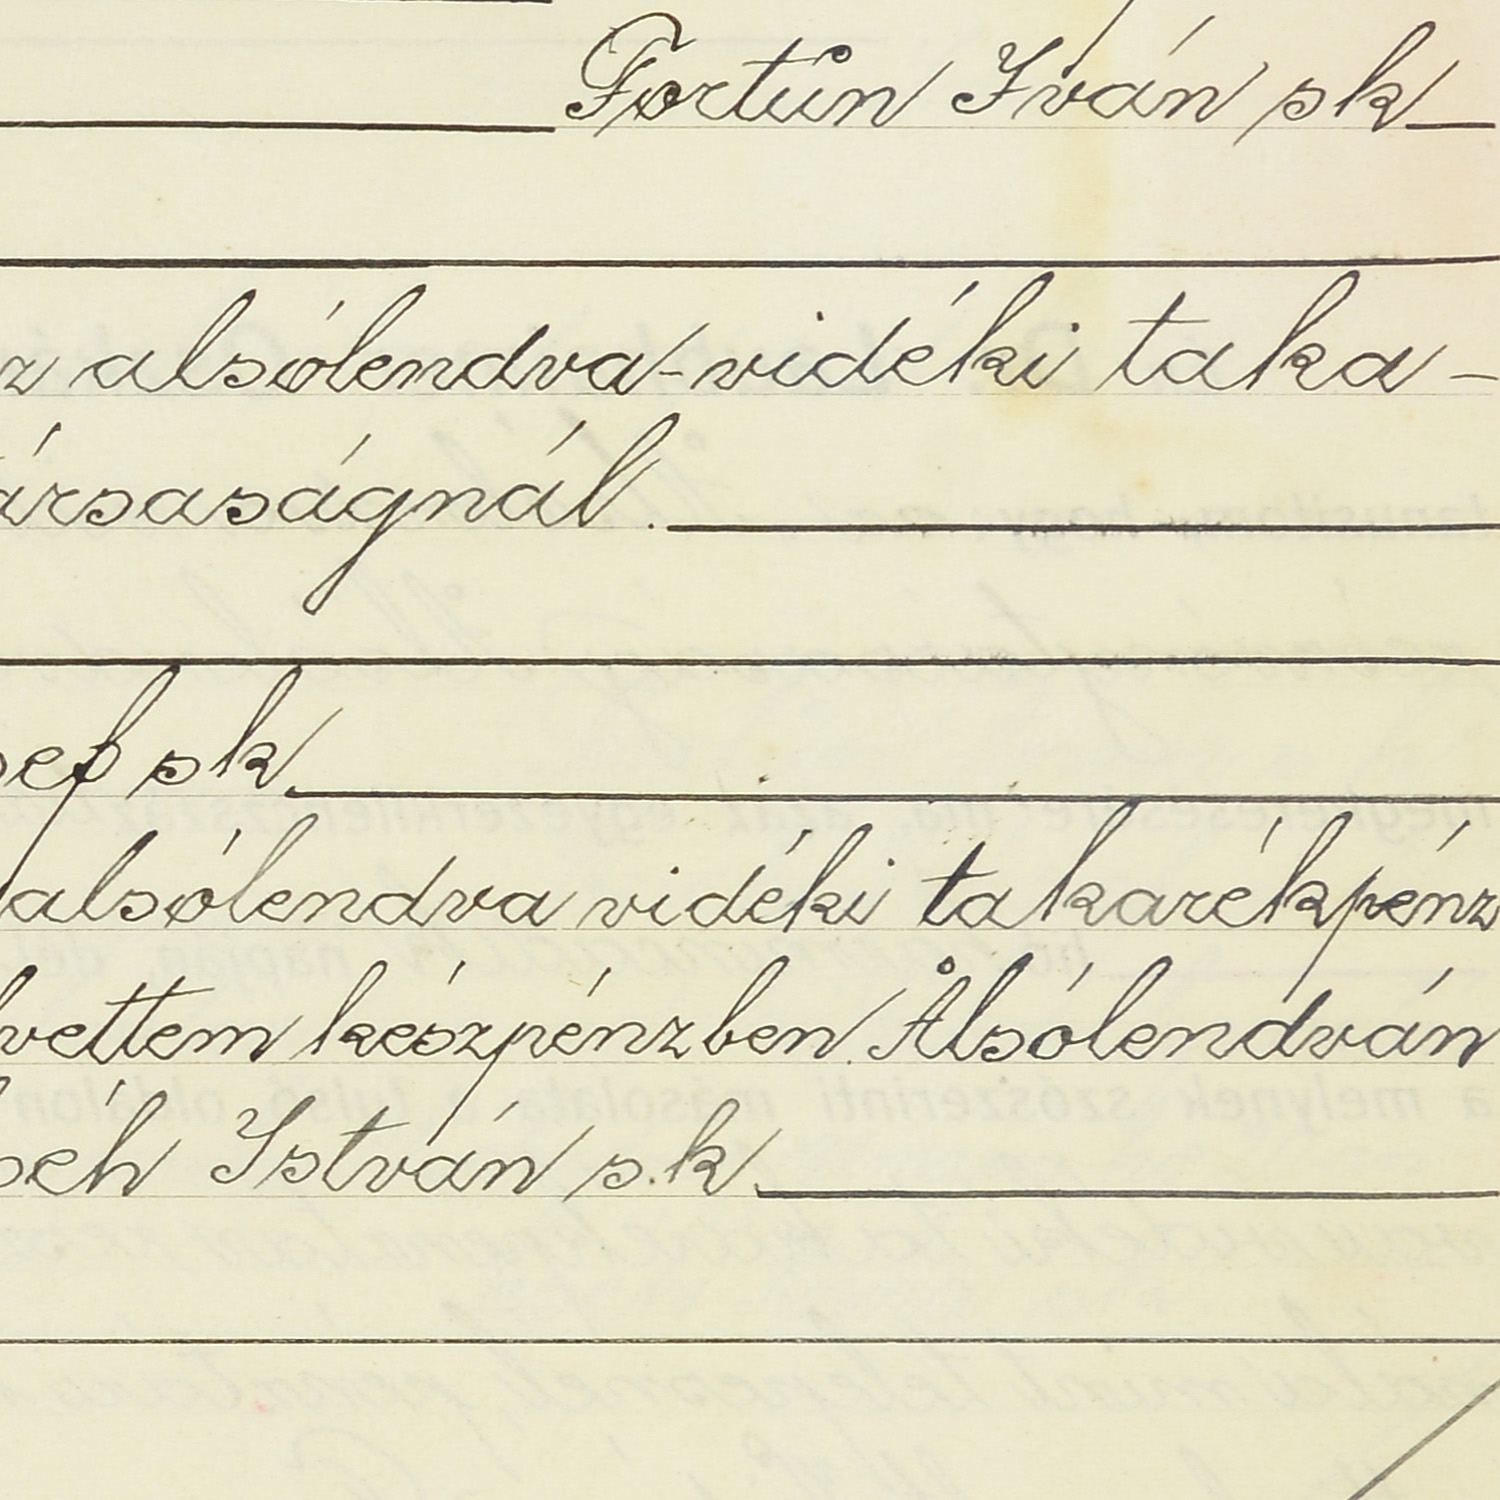 Fortún Iván sk
z alsólendva-vidéki taka-
ársaságnál.
sef sk.
alsólendva vidéki takarékpénz
lvettem készpénzben. Alsólendván
séh István s.k.